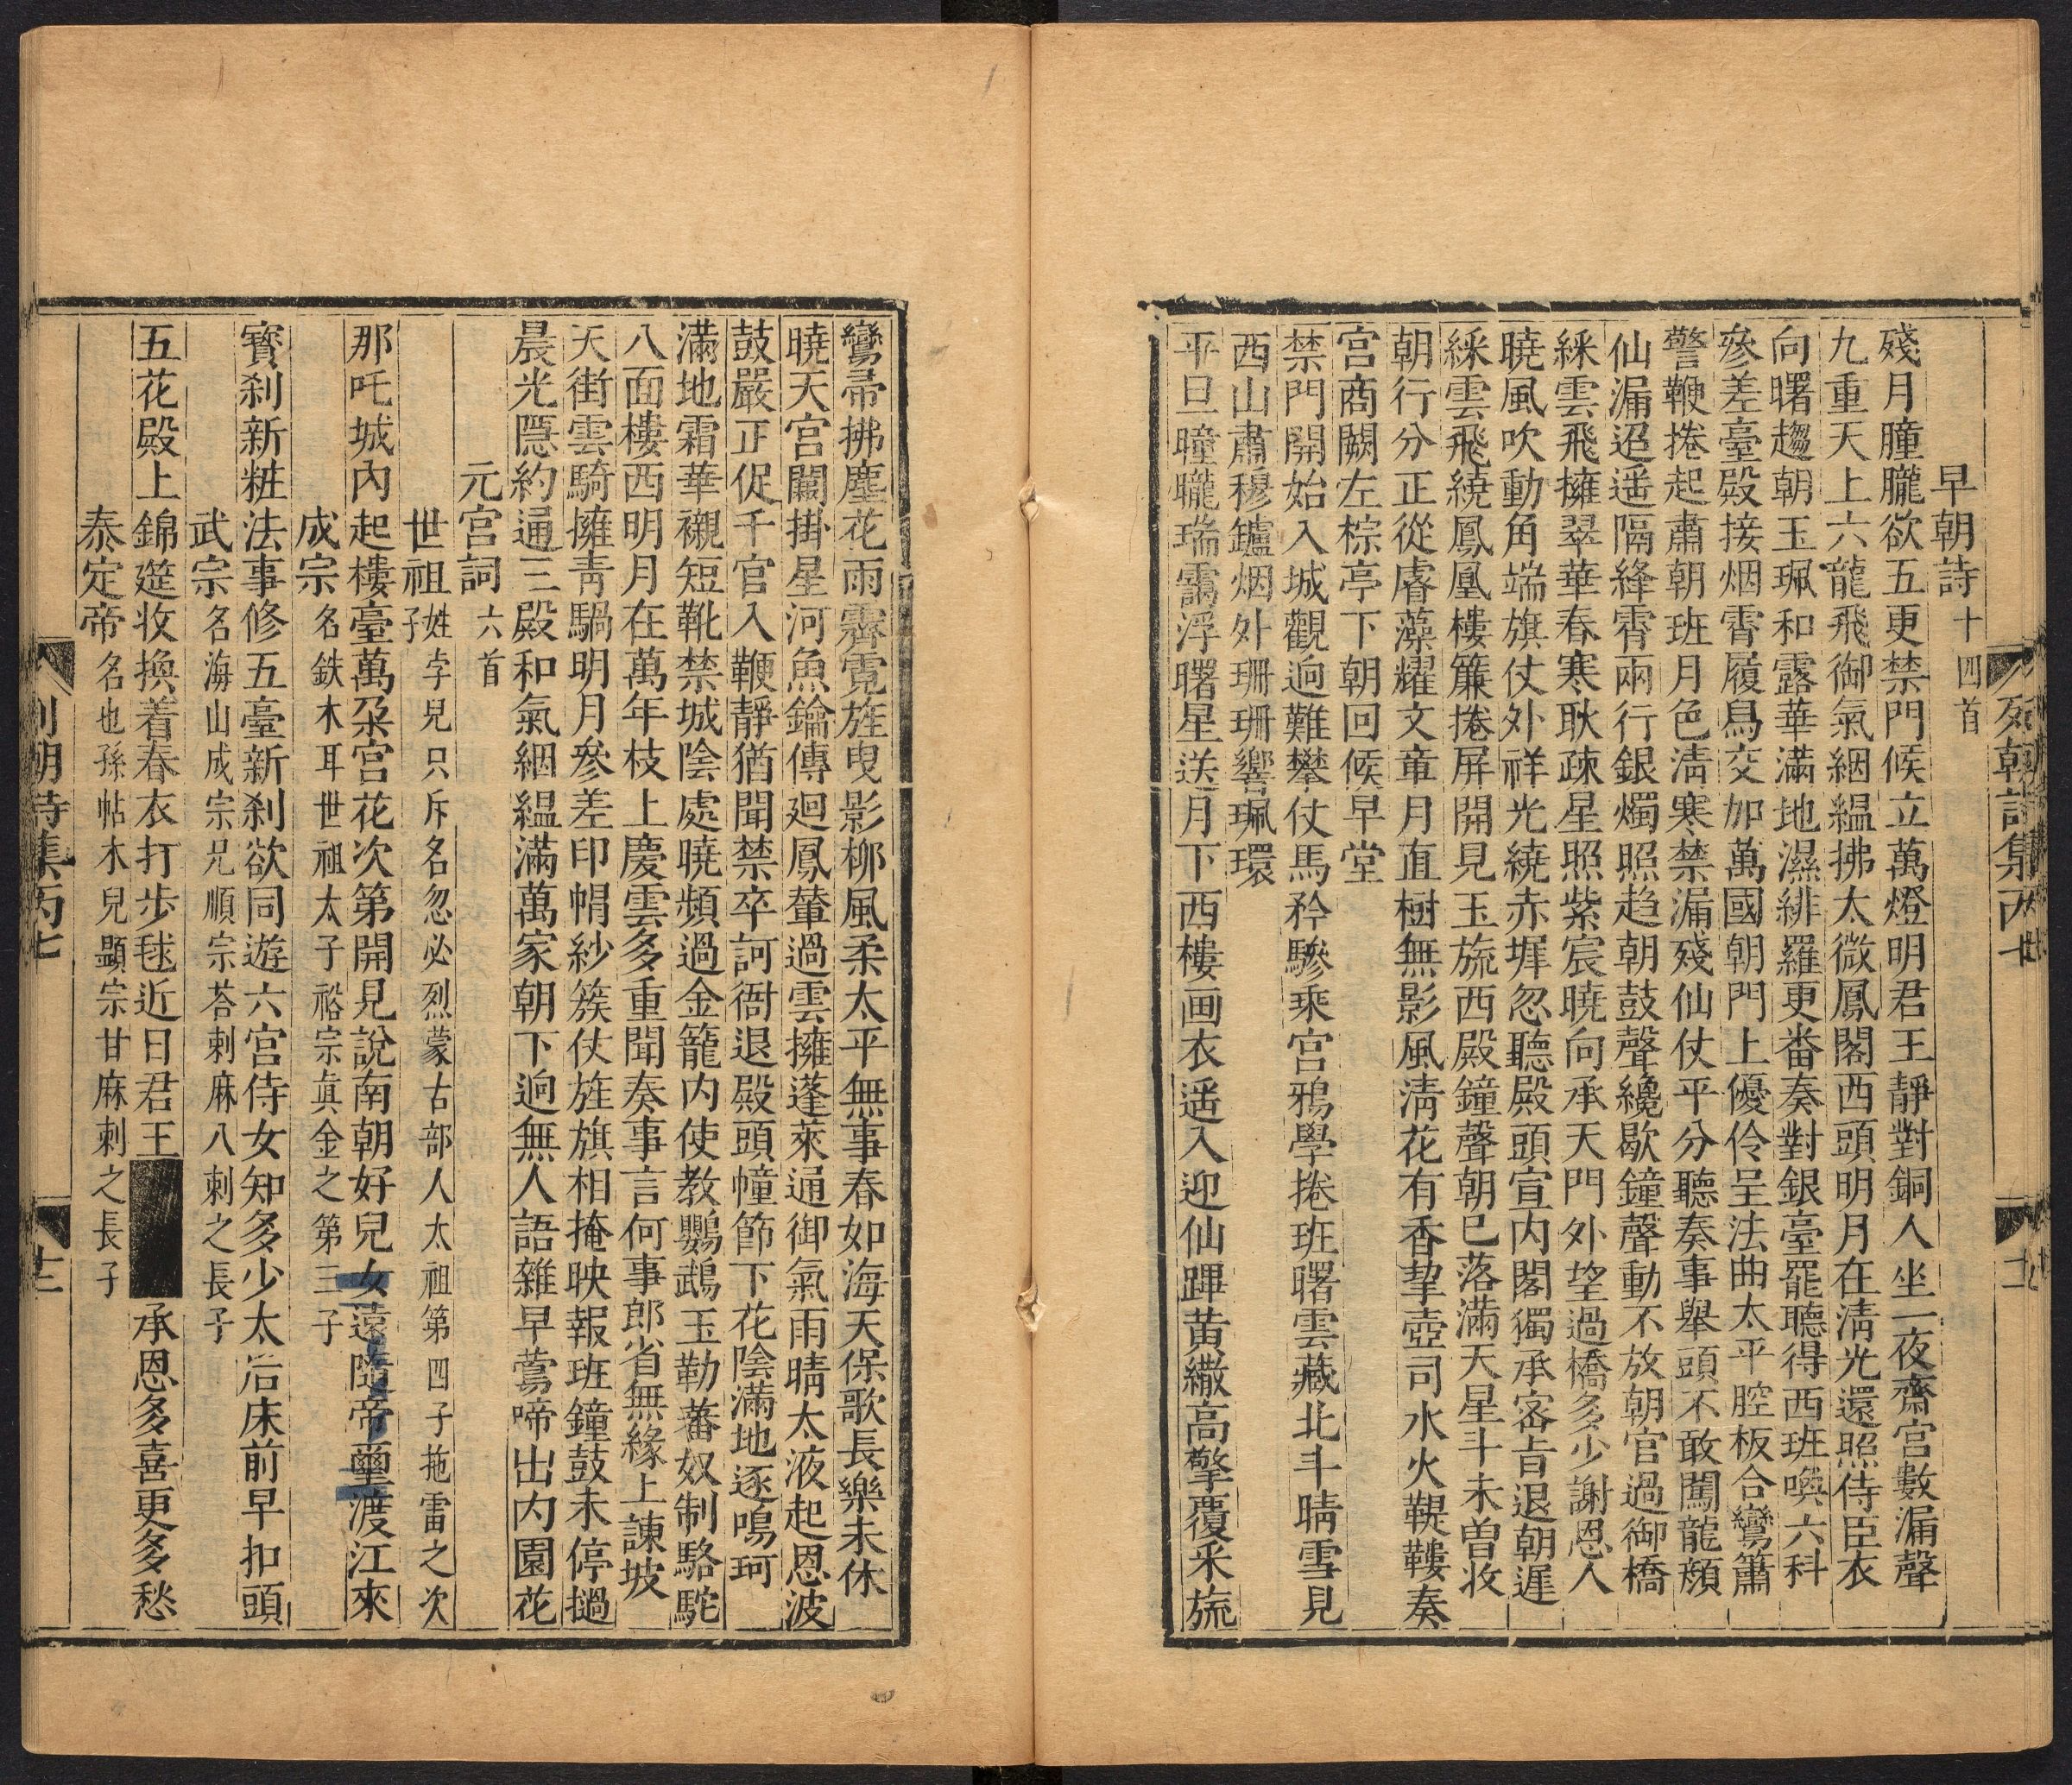 列朝詩集丙七
早朝詩十四首
殘月朣朧欲五更禁門候立萬燈明君王靜對銅人坐一夜齋宮數漏聲
九重天上六龍飛御氣絪縕拂太微鳳閣西頭明月在清光還照侍臣衣
向曙趨朝玉珮和露華滿地濕緋羅更番奏對銀臺罷聽得西班喚六科
參差臺殿接烟霄履舄交加萬國朝門上優伶呈法曲太平腔板合鸞簫
警鞭捲起肅朝班月色清寒禁漏殘仙仗平分聽奏事舉頭不敢闖龍顏
仙漏迢遥隔絳霄兩行銀燭照趋朝鼓聲纔歇鐘聲動不放朝官過御橋
綵雲飛擁翠華春寒耿疎星照紫宸曉向承天門外望過橋多少謝恩人
曉風吹動角端旗仗外祥光繞赤墀忽聽殿頭宣内閣獨承密旨退朝遲
綵雲飛繞鳳凰樓簾捲屏開見玉旒西殿鐘聲朝已落滿天星斗未曾收
朝行分正從睿藻耀文章月直樹無影風清花有香挈壺司水火鞮鞻奏
宮商闕左棕亭下朝回候早堂
禁門開始入城觀逈難攀仗馬矜驂乘宮鴉學捲班曙雲藏北斗晴雪見
西山肅穆鑪烟外珊珊響珮環
平旦曈曨瑞靄浮曙星送月下西樓画衣遥入迎仙蹕黄繖高擎覆釆旒
鸞帚拂塵花雨霽霓旌曳影柳風柔太平無事春如海天保歌長樂未休
曉天宮闕掛星河魚鑰傳廻鳳輦過雲擁蓬萊通御氣雨晴太液起恩波
鼓嚴正促千官入鞭靜猶聞禁卒訶衙退殿頭幢節下花陰滿地逐鳴珂
滿地霜華襯短靴禁城陰處曉頻過金籠内使教鸚鵡玉勒蕃奴制駱駝
八面樓西明月在萬年枝上慶雲多重聞奏事言何事郎省無緣上諫坡
天街雲騎擁青騧明月參差印帽紗簇仗旌旗相掩映報班鐘鼓未停撾
晨光隱約通三殿和氣絪縕滿萬家朝下逈無人語雜早鶯啼出内園花
元宮詞六首
世祖姓孛兒只斤名忽必烈蒙古部人太祖第四子拖雷之次子
那吒城内起樓臺萬朶宮花次第開見說南朝好兒女遠隨帝璽渡江來
成宗名鉄木耳世祖太子裕宗真金之第三子
寳刹新粧法事修五臺新刹欲同遊六宮侍女知多少太后床前早扣頭
武宗名海山成宗兄順宗荅剌麻八剌之長子
五花殿上錦筵收換着春衣打步毬近日君王承恩多喜更多愁
泰定帝名也孫帖木兒顯宗甘麻剌之長子
列朝詩集丙七